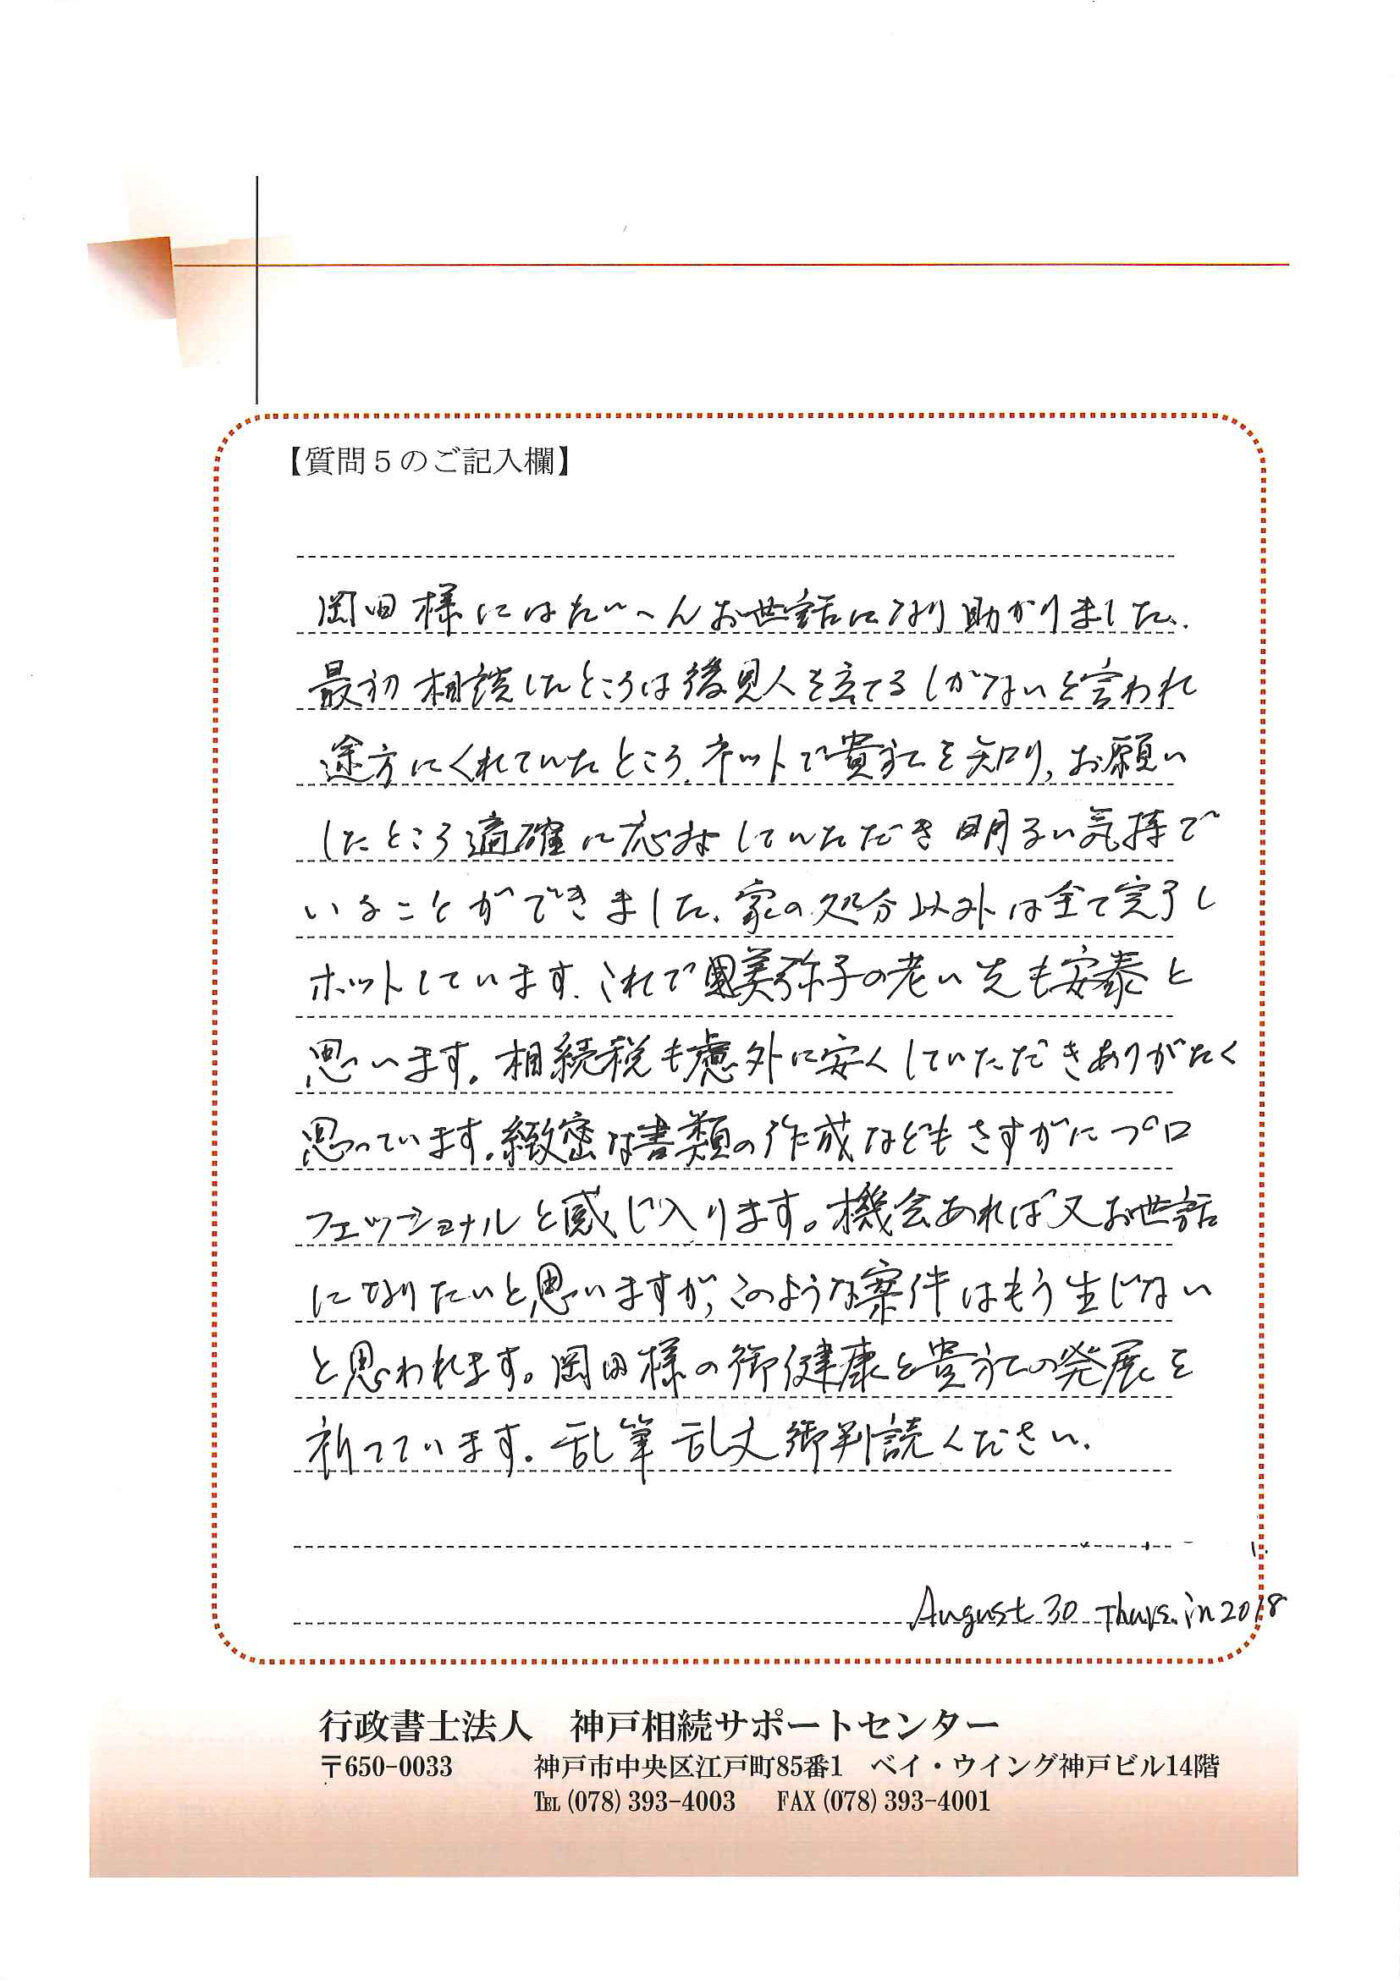 【質問５のご記入欄】
岡田様にはたいへんお世話になり助かりました、
最初相談したところは後見人を立てるしかないと言われ
途方にくれていたところ、ネットで貴方を知り、お願い
したところ適確に応対していただき明るい気持で
いることができました、家の処分以外は全て完了し
ホットしています、これで恵美弥子の老い先も安泰と
思います。相続税も慮外に安くしていただきありがたく
思っています。緻密な書類の作成などもさすがにプロ
フェッショナルと感じ入ります。機会あれば又お世話
になりたいと思いますが、このような案件はもう生じない
と思われます。岡田様の御健康と貴方の発展を
祈っています。乱筆乱文御判読ください、
August 30 Thurs. in 2018
行政書士法人　神戸相続サポートセンター
〒650-0033　神戸市中央区江戸町85番1　ベイ・ウイング神戸ビル14階
TEL (078) 393-4003　FAX (078) 393-4001